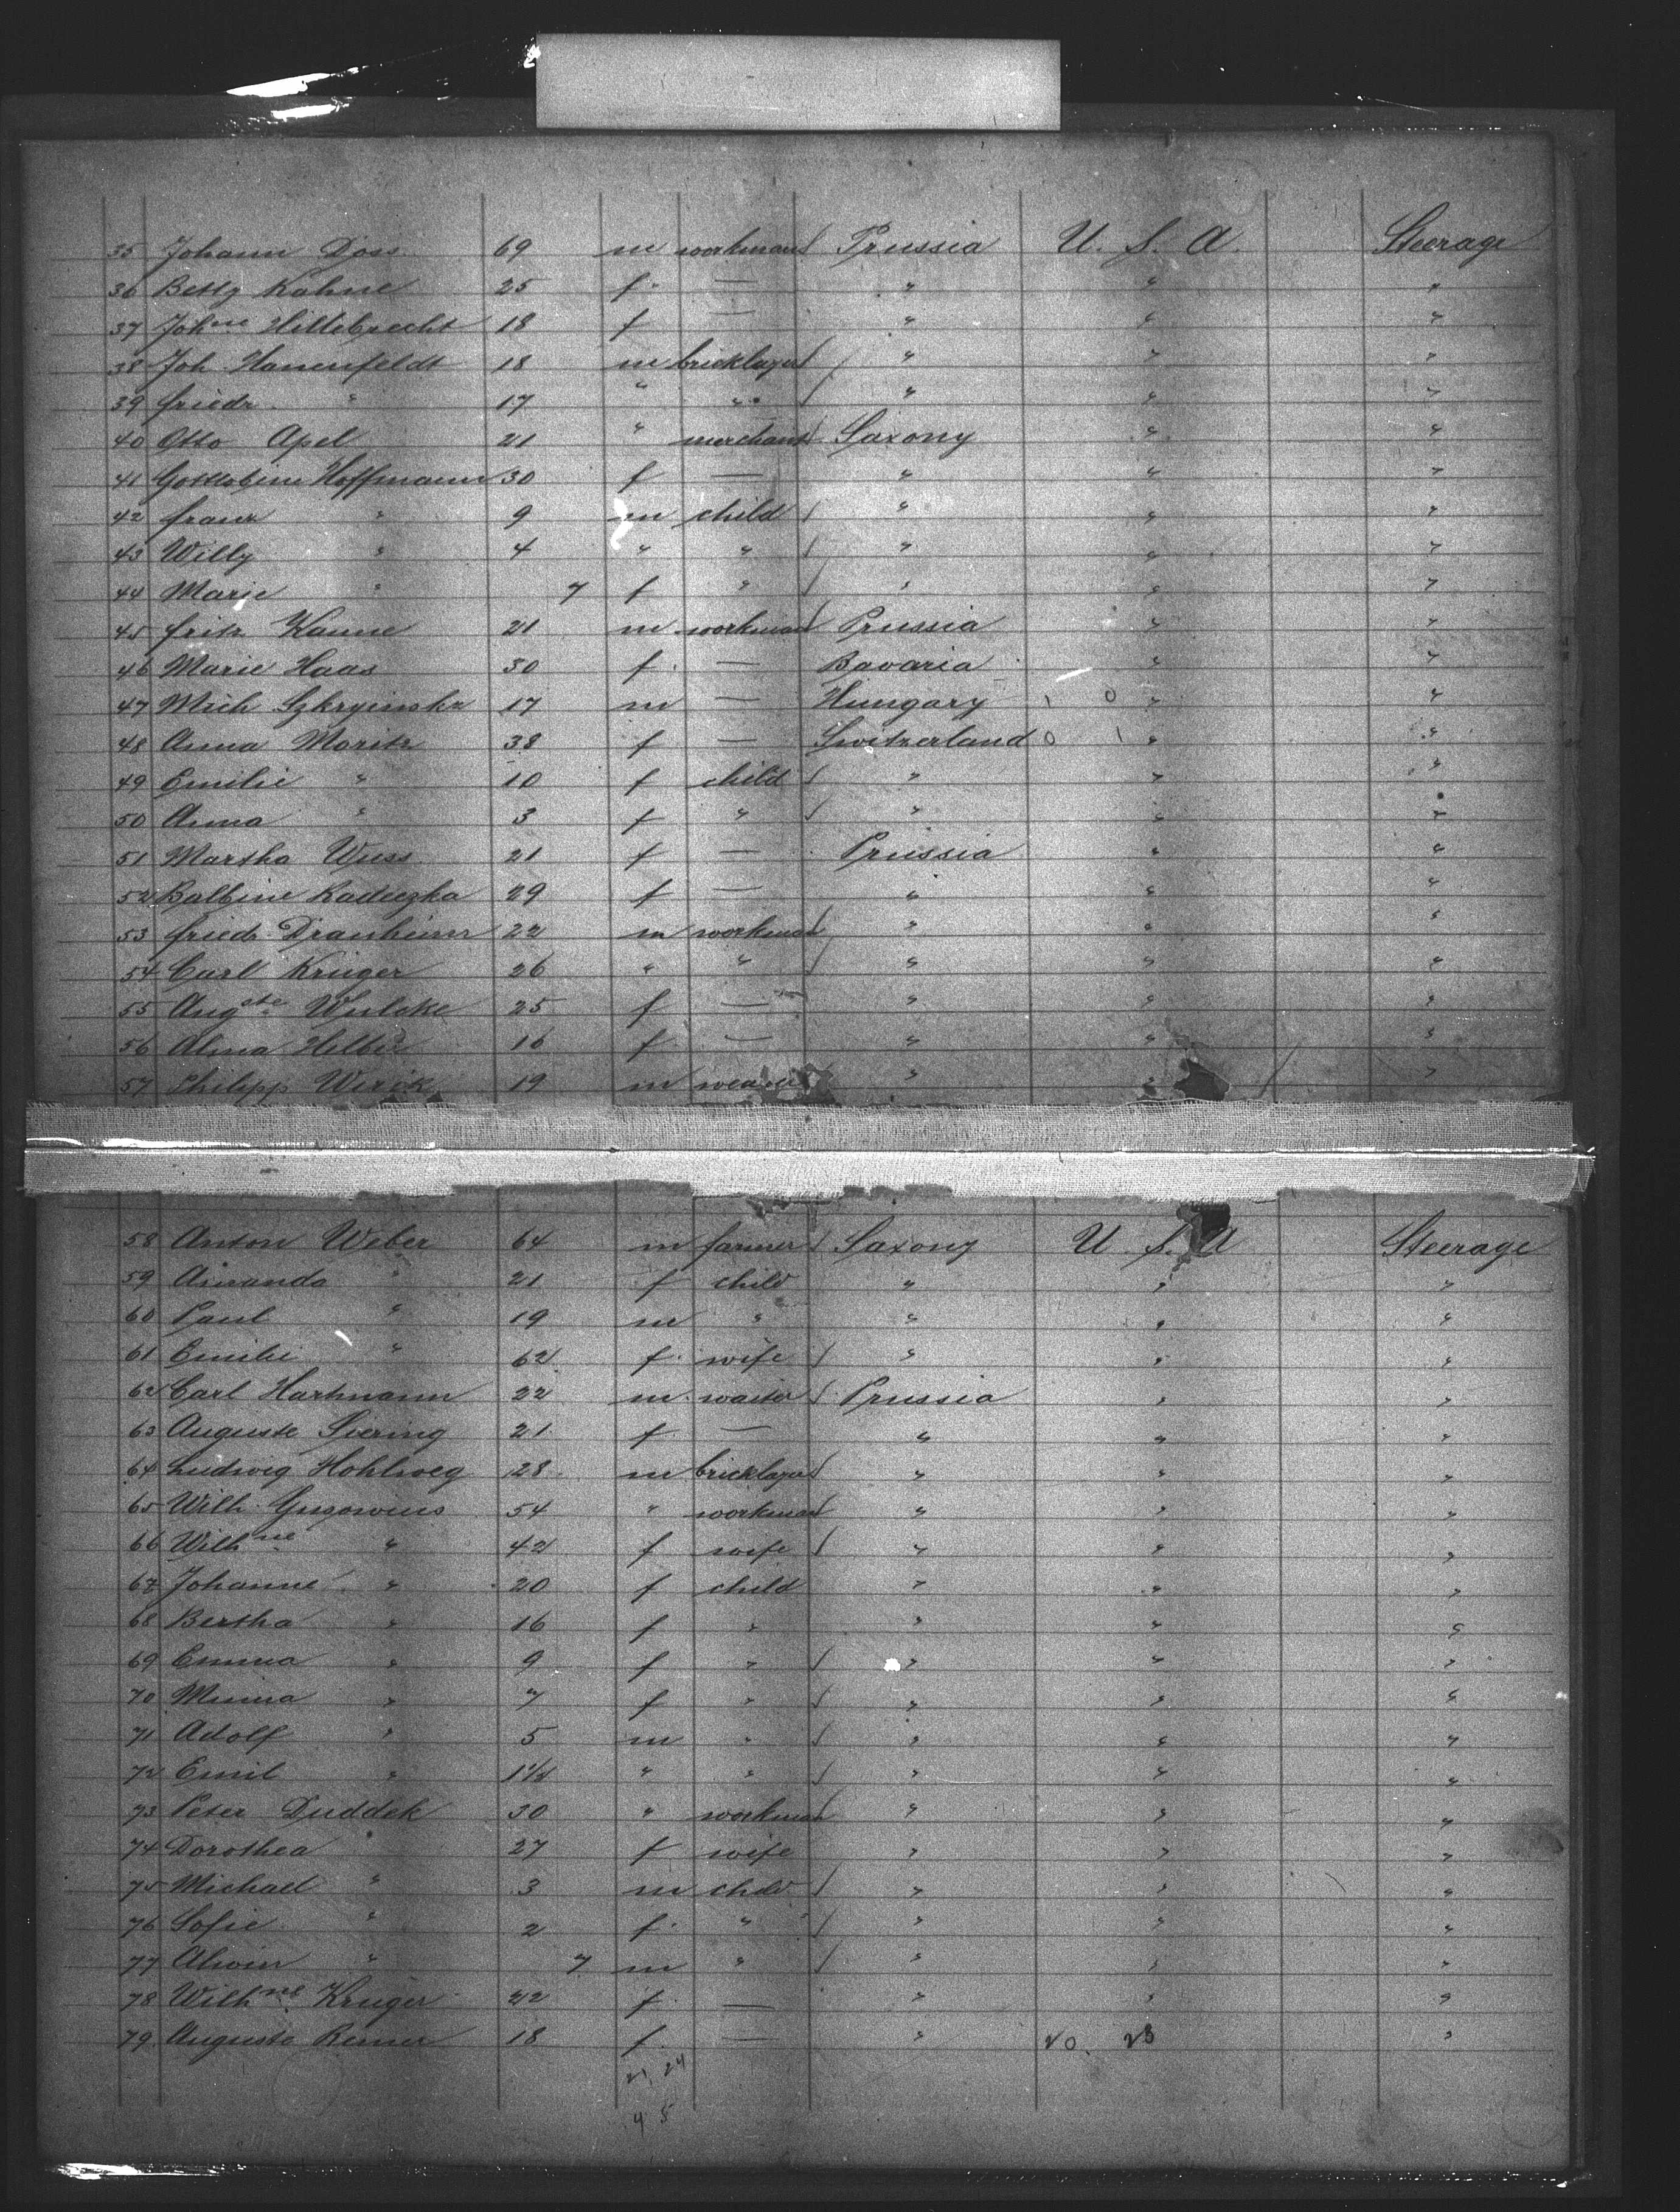 35 Johann Doss 69 m workman Prussia U. S. A. Steerage
36 Betty Kohne 25 f. — " " "
37 Joh.ne Hillebrecht 18 f — " " "
38 Joh Hanenfeldt 18 m bricklayer " " "
39 Friedr. " 17 " " " " "
40 Otto Apel 21 " merchant Saxony " "
41 Gottlobine Hoffmann 30 f — " " "
42 Franz " 9 m child " " "
43 Willy " 4 " " " " "
44 Marie " 7 f " " " "
45 Fritz Kanne 21 m workman Prussia " "
46 Marie Haas 50 f. — Bavaria " "
47 Mich 17 m — Hungary 1 0 " "
48 Anna Moritz 38 f — Switzerland 0 1 " "
49 Emilie " 10 f child " " "
50 Anna " 3 f " " " "
51 Martha Wuss 21 f — Prussia " "
52 Balbine Radeczka 29 f — " " "
53 Friedr. 22 m workman " " "
54 Carl Krüger 26 " " " " "
55 Aug.ste Wulcke 25 f — " " "
56 Alma 16 f — " " "
57 Philipp 19 m weaver " " "
58 Anton Weber 64 m farmer Saxony U. S. A Steerage
59 Amanda " 21 f child " " "
60 Paul " 19 m " " " "
61 Emilie " 62 f. wife " " "
62 Carl Hartmann 22 m. waiter Prussia " "
63 Auguste Sievring 21 f — " " "
64 Ludwig Hohlweg 28 m bricklayer " " "
65 Wilh. 54 " workman " " "
66 Wilh.ne " 42 f wife " " "
67 Johanne " 20 f child " " "
68 Bertha " 16 f " " " "
69 Emma " 9 f " " " "
70 Minna " 7 f " " " "
71 Adolf " 5 m " " " "
72 Emil " 1½ " " " " "
73 Peter Duddek 30 " workman " " "
74 Dorothea " 27 f wife " " "
75 Michael " 3 m child " " "
76 Sofie " 2 f. " " " "
77 Alwin " 7 m " " " "
78 Wilh.ne Krüger 22 f. — " " "
79 Auguste Remer 18 f. — " 20. 23 "
21, 24
4 5